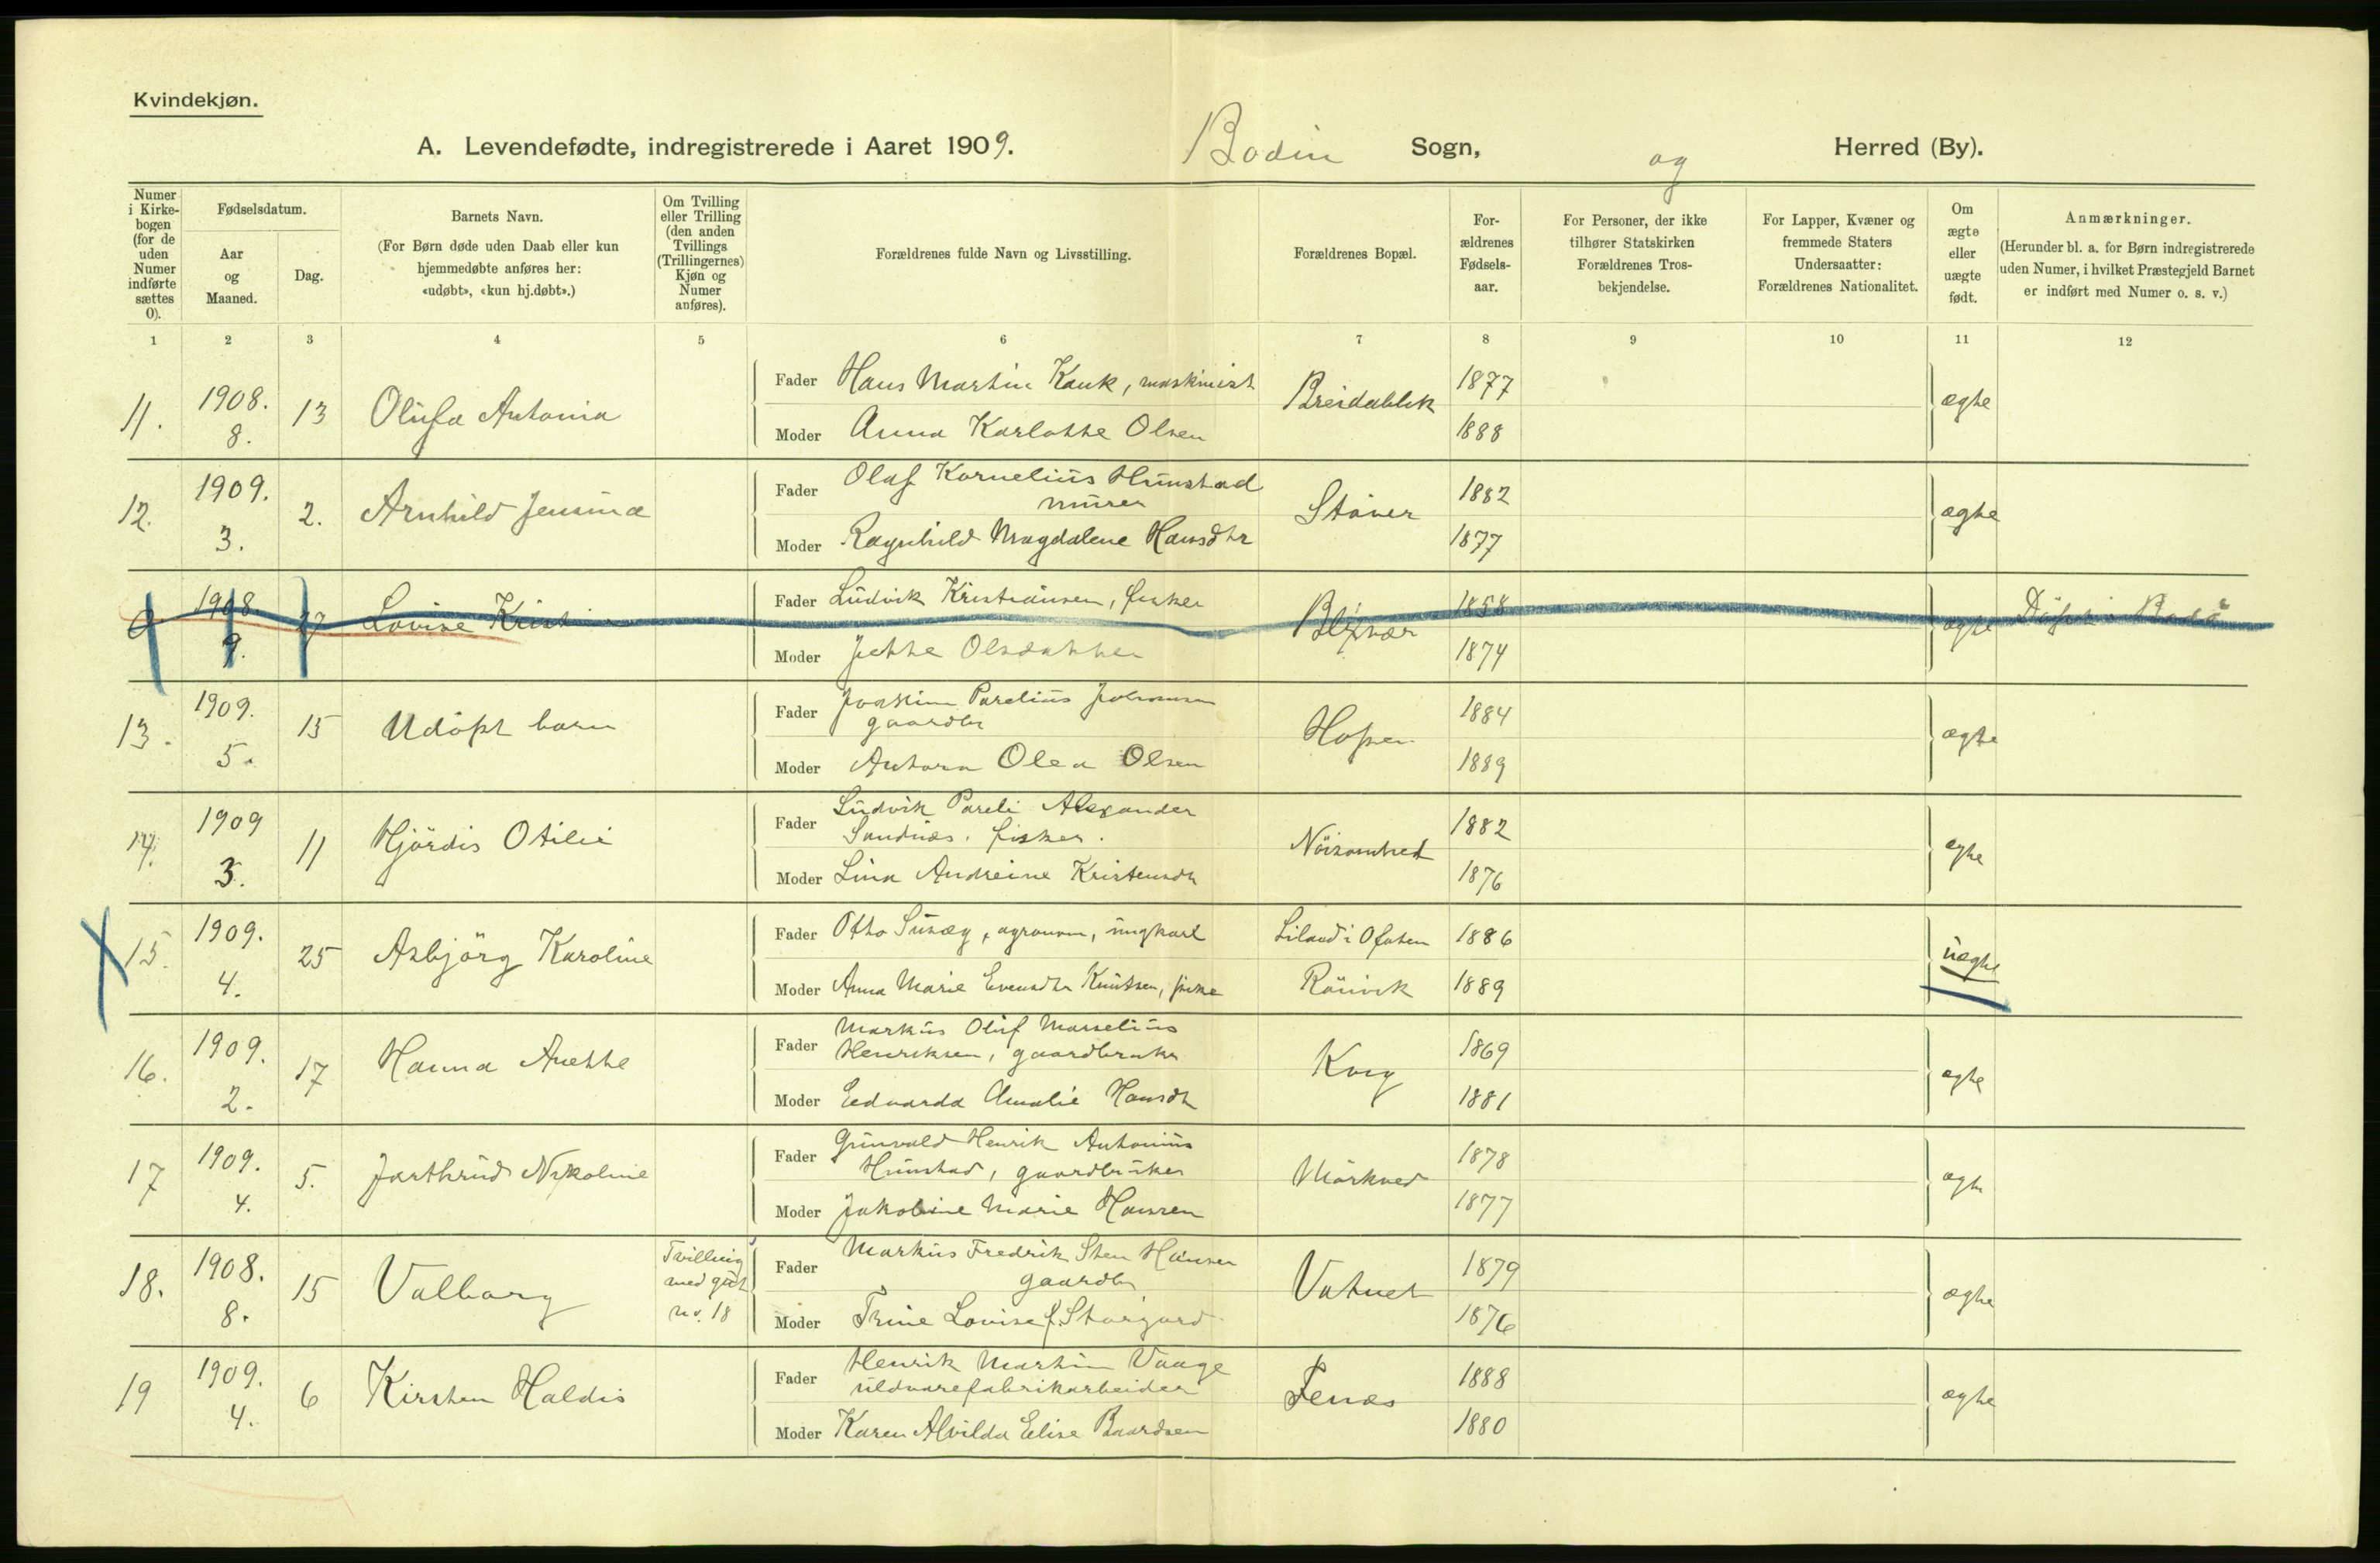 Kvindekjøn.
A. Levendefødte, indregistrerede i Aaret 1909. Bodin Sogn, og Herred (By).
Numer i Kirkebogen (for de uden Numer indførte sættes 0).
Fødselsdatum.
Aar og Maaned.
Dag.
Barnets Navn.
(For Børn døde uden Daab eller kun hjemmedøbte anføres her: «udøbt», «kun hj.døbt».)
Om Tvilling eller Trilling (den anden Tvillings (Trillingernes) Kjøn og Numer anføres).
Forældrenes fulde Navn og Livsstilling.
Forældrenes Bopæl.
Forældrenes Fødselsaar.
For Personer, der ikke tilhører Statskirken Forældrenes Trosbekjendelse.
For Lapper, Kvæner og fremmede Staters Undersaatter: Forældrenes Nationalitet.
Om ægte eller uægte født.
Anmærkninger.
(Herunder bl. a. for Børn indregistrerede uden Numer, i hvilket Præstegjeld Barnet er indført med Numer o. s. v.)
1 2 3 4 5 6 7 8 9 10 11 12
11. 1908. 8. 13 Olufa Antonia
Fader Hans Martin Kauk, maskinist Breidablik 1877 ægte
Moder Anna Karlotte Olsen 1888
12. 1909. 3. 2. Arnhild Jensine
Fader Olaf Kornelius Hunstad
murer Støver 1882 ægte
Moder Ragnhild Magdalene Hansdtr 1877
0 1908. 9. 27 Lovise
Fader Ludvik Kristiansen, fisker Blixvær 1858 ægte Bodø
Moder Jette Olsdatter 1874
13. 1909. 5. 15 Udøpt barn
Fader Joakim Parelius Johansen
gaardbr Hopen 1884 ægte
Moder Antora Olea Olsen 1889
14. 1909 3. 11 Hjördis Otilie
Fader Ludvik Pareli Alexander
Sandnæs. fisker. Nöisomhed 1882 egte
Moder Lina Andreine Kristensdtr 1876
15. 1909. 4. 25 Asbjörg Karoline
Fader Otto , agronom, ungkarl Liland i Ofoten 1886 uægte
Moder Anna Marie Evensdtr Knutsen, pike Rönvik 1889
16. 1909. 2. 17 Hanna Anette
Fader Markus Oluf Marselius
Henriksen, gaardbruker Kvig 1869 egte
Moder Edvarda Amalie Hansdtr 1881
17 1909. 4. 5. Jarthrud Nikoline
Fader Grunvald Henrik Antonius
Hunstad, gaardbruker Mörkved 1878 ægte
Moder Jakobine Marie Hansen 1877
18. 1908. 8. 15 Valborg Tvilling med gut no. 18
Fader Markus Fredrik Sten Hansen
gaardbr Vatnet 1879 ægte
Moder Trine Lovise f. Storjord 1876
19 1909. 4. 6 Kirsten Haldis
Fader Henrik Martin Vaage
uldvarefabrikarbeider Fenes 1888 ægte
Moder Karen Alvilda Elise Baardsen 1880